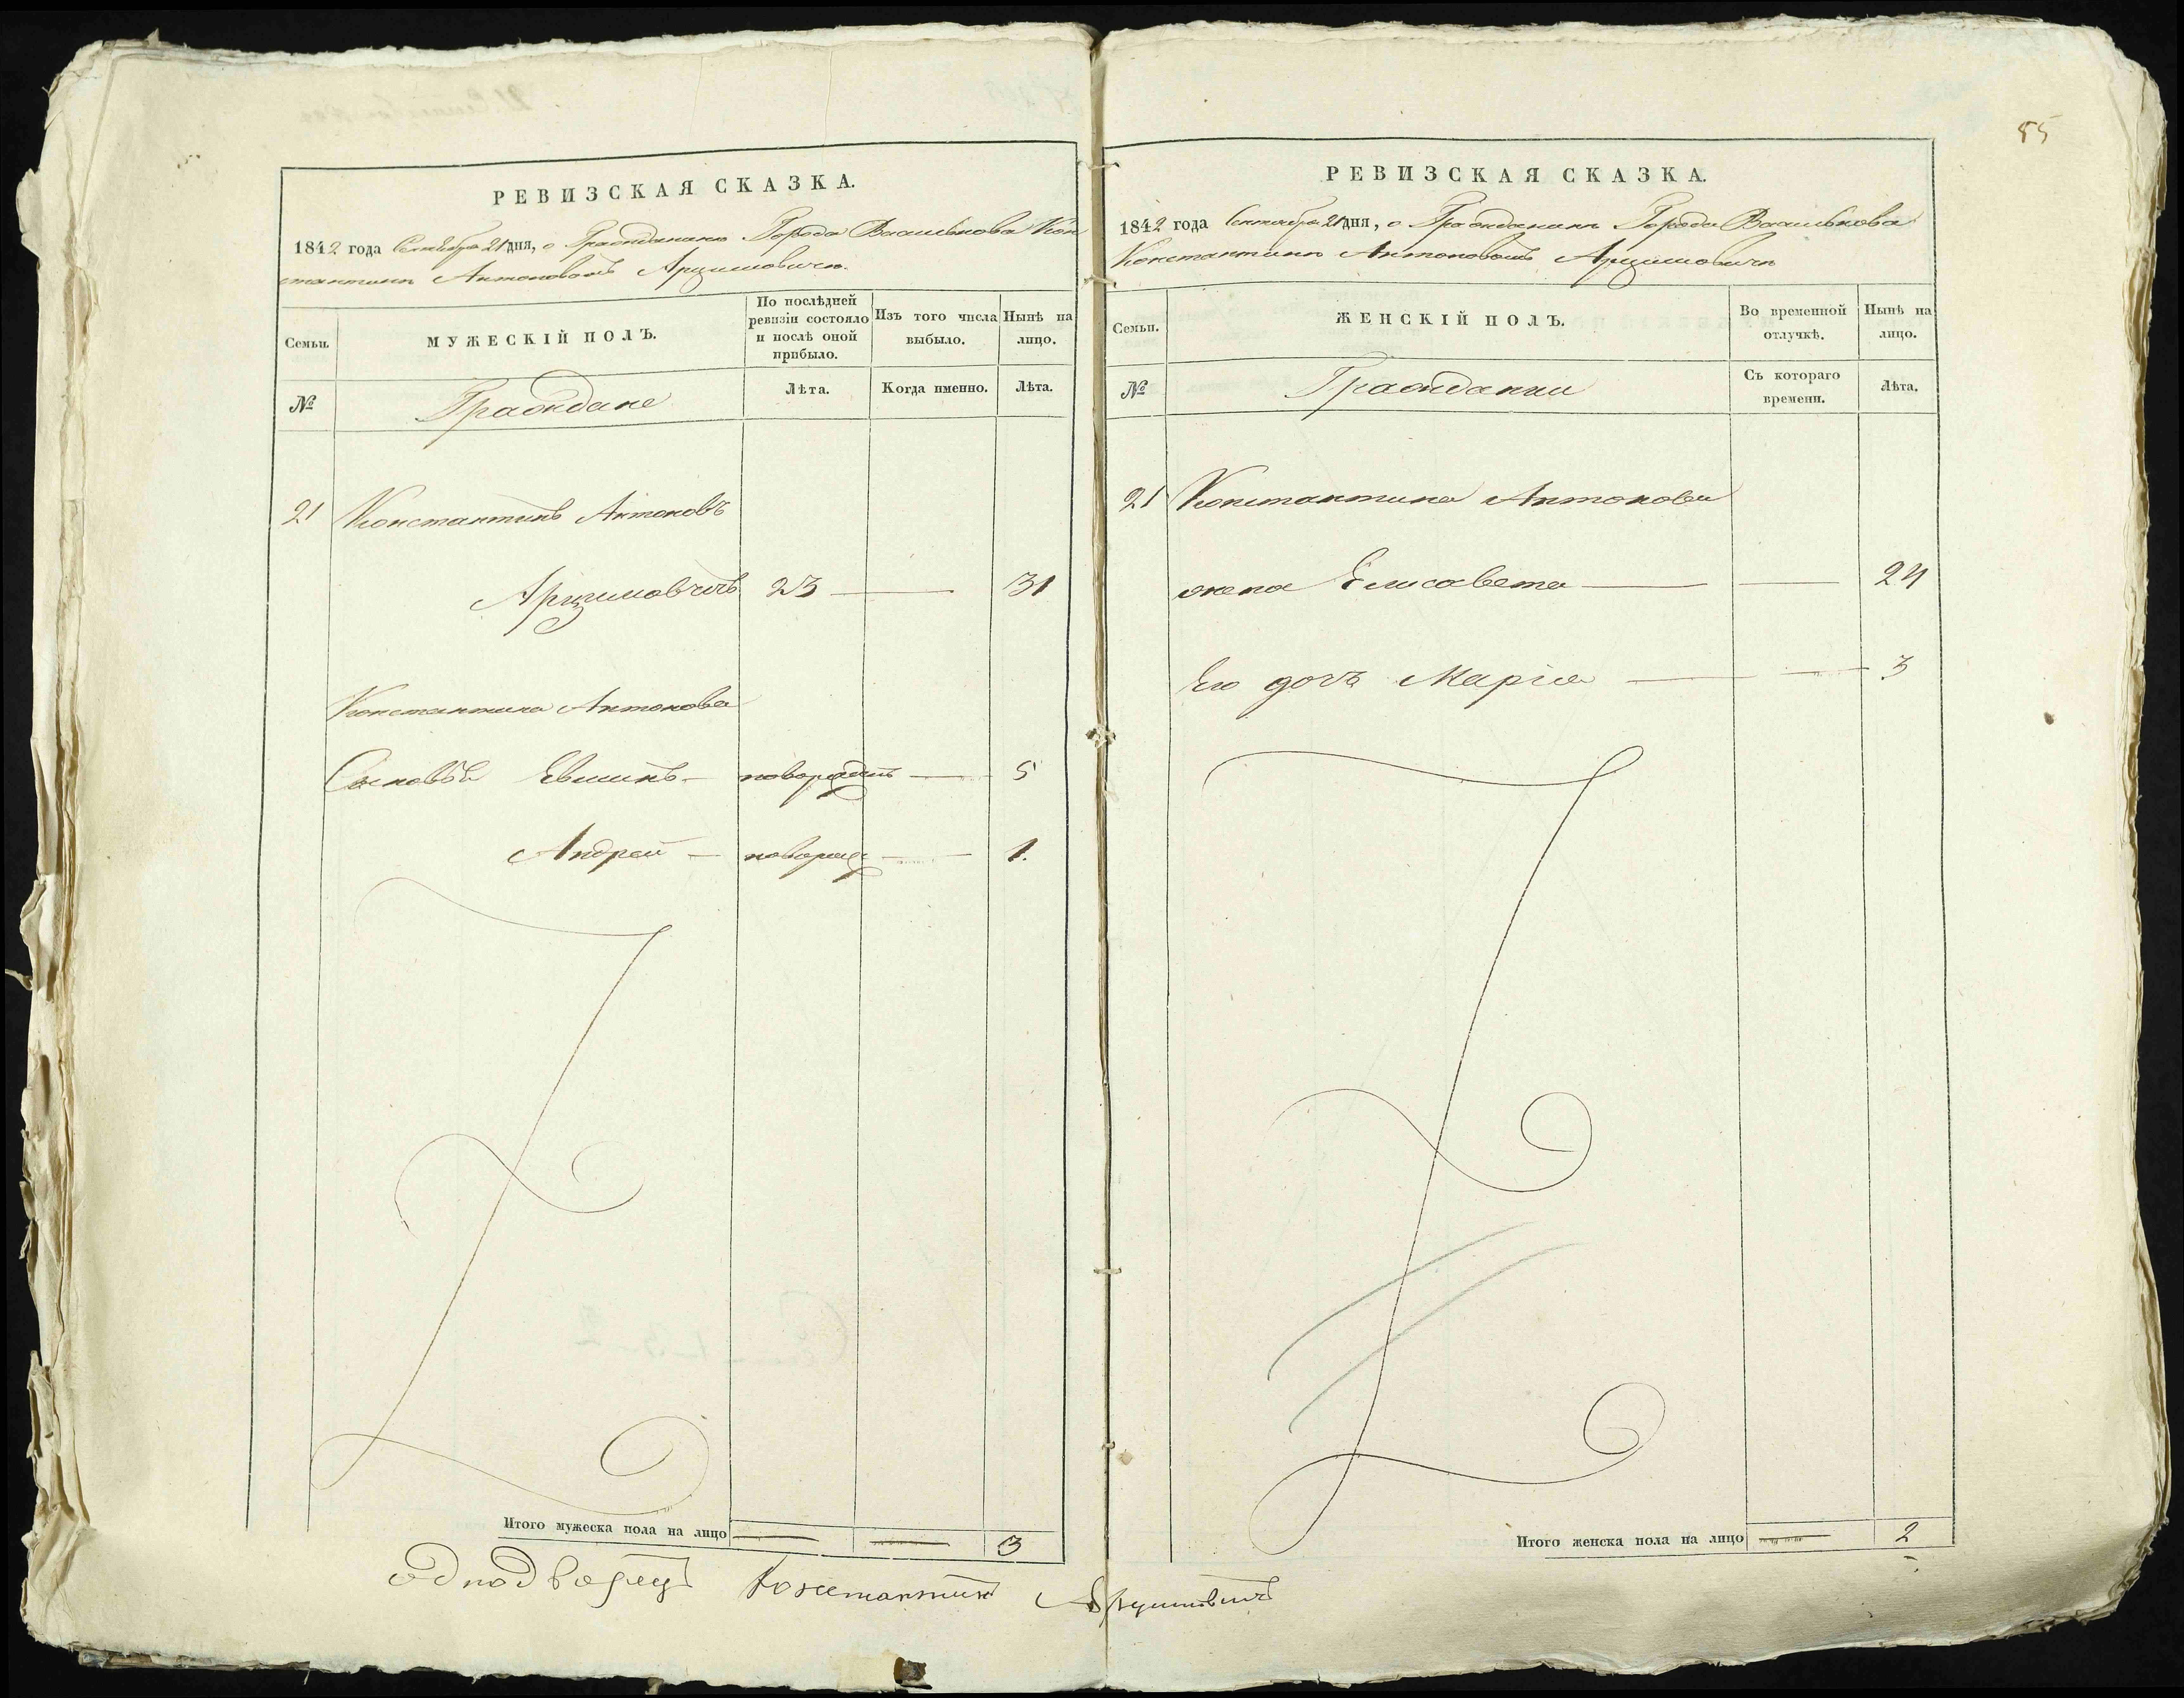 РЕВИЗСКАЯ СКАЗКА.
1842 года Сентября 21 дня, о Гражданинѣ Города Василькова Кон
стантинѣ Антоновомъ Арцимовичѣ.
Семьи.
МУЖЕСКІЙ ПОЛЪ.
По послѣдней ревизіи состояло и послѣ оной прибыло.
Изъ того числа выбыло.
Нынѣ на лицо.
№
Граждане
Лѣта.
Когда именно.
Лѣта.
21 Константинъ Антоновъ
Арцимовичъ 23 — 31
Константина Антонова
Сыновья — новорожден — 5
Андрей — новорож — 1.
Итого мужеска пола на лицо — — 3
55
РЕВИЗСКАЯ СКАЗКА.
1842 года Сентября 21 дня, о Гражданинѣ Города Василькова
Константинѣ Антоновомъ Арцимовичѣ
Семьи.
ЖЕНСКІЙ ПОЛЪ.
Во временной отлучкѣ.
Нынѣ на лицо.
№
Гражданки
Съ котораго времени.
Лѣта.
21 Константина Антонова
жена Елисавета — — 24
Его дочь Марія — — 3
Итого женска пола на лицо — 2
однодворецъ Констаптинъ Арцимовичъ